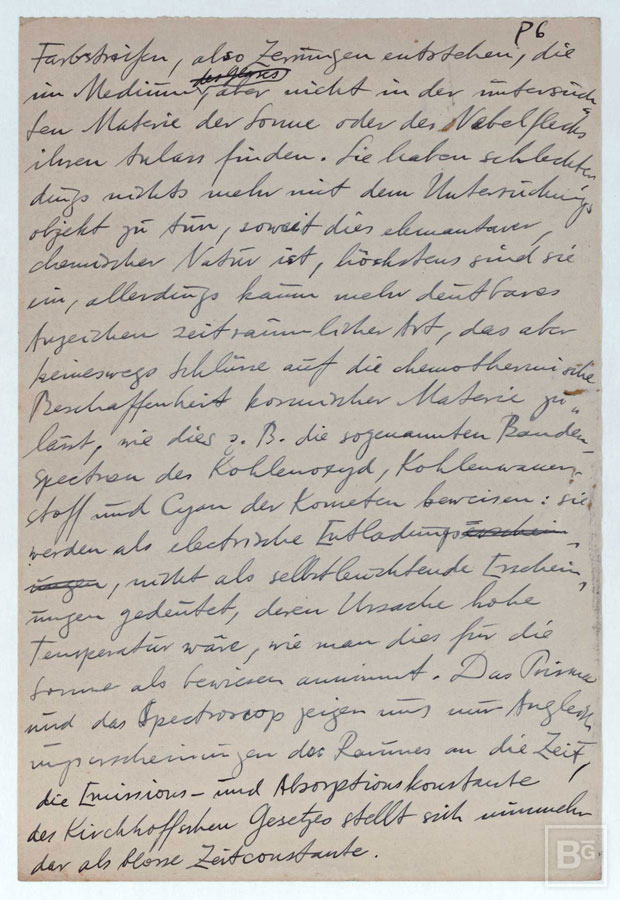 P6
Farbstreifen, also Zerrungen entstehen, die
des Glases
im Medium, aber nicht in der untersuch-
ten Materie der Sonne oder des Nebelflecks
ihren Anlass finden. Sie haben schlechter-
dings nichts mehr mit dem Untersuchungs
objekt zu tun, soweit dies elementarer,
chemischer Natur ist, höchstens sind sie
ein, allerdings kaum mehr deutbares
Anzeichen zeiträumlicher Art, das aber
keineswegs Schlüsse auf die chemothermische
Beschaffenheit kosmischer Materie zu-
lässt, wie dies z. B. die sogenannten Banden-
spectren des Kohlenoxyd, Kohlenwasser-
stoff und Cyan der Kometen beweisen: sie
werden als electrische Entladungserschein
ungen, nicht als selbstleuchtende Erschein-
ungen gedeutet, deren Ursache hohe
Temperatur wäre, wie man dies für die
Sonne als bewiesen annimmt. Das Prisma
und das Spectroscop zeigen uns nur Angleich
ungserscheinungen des Raumes an die Zeit,
die Emissions- und Absorptionskonstante
des Kirchhoffschen Gesetzes stellt sich nunmehr
dar als blosse Zeitconstante.
BG